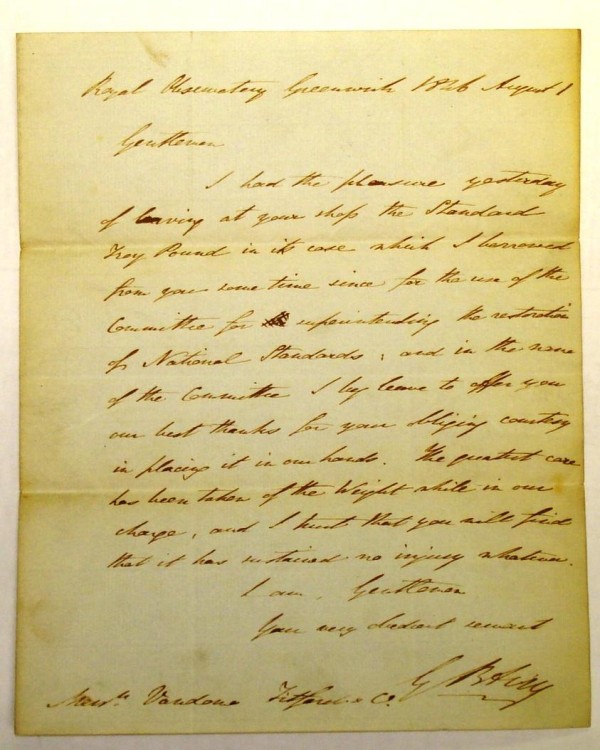 Royal Observatory Greenwich 1846 August 1
Gentlemen
I had the pleasure yesterday
of leaving at your shop the Standard
Troy Pound in its case which I borrowed
from you some time since for the use of the
Committee for superintending the restoration
of National Standards; and in the name
of the Committee I beg leave to offer you
our best thanks for your obliging courtesy
in placing it in our hands. The greatest care
has been taken of the Weight while in our
charge, and I trust that you will find
that it has sustained no injury whatever.
I am, Gentlemen
Your very obedient servant
G B Airy
Messrs. Vandome Titford & Co.